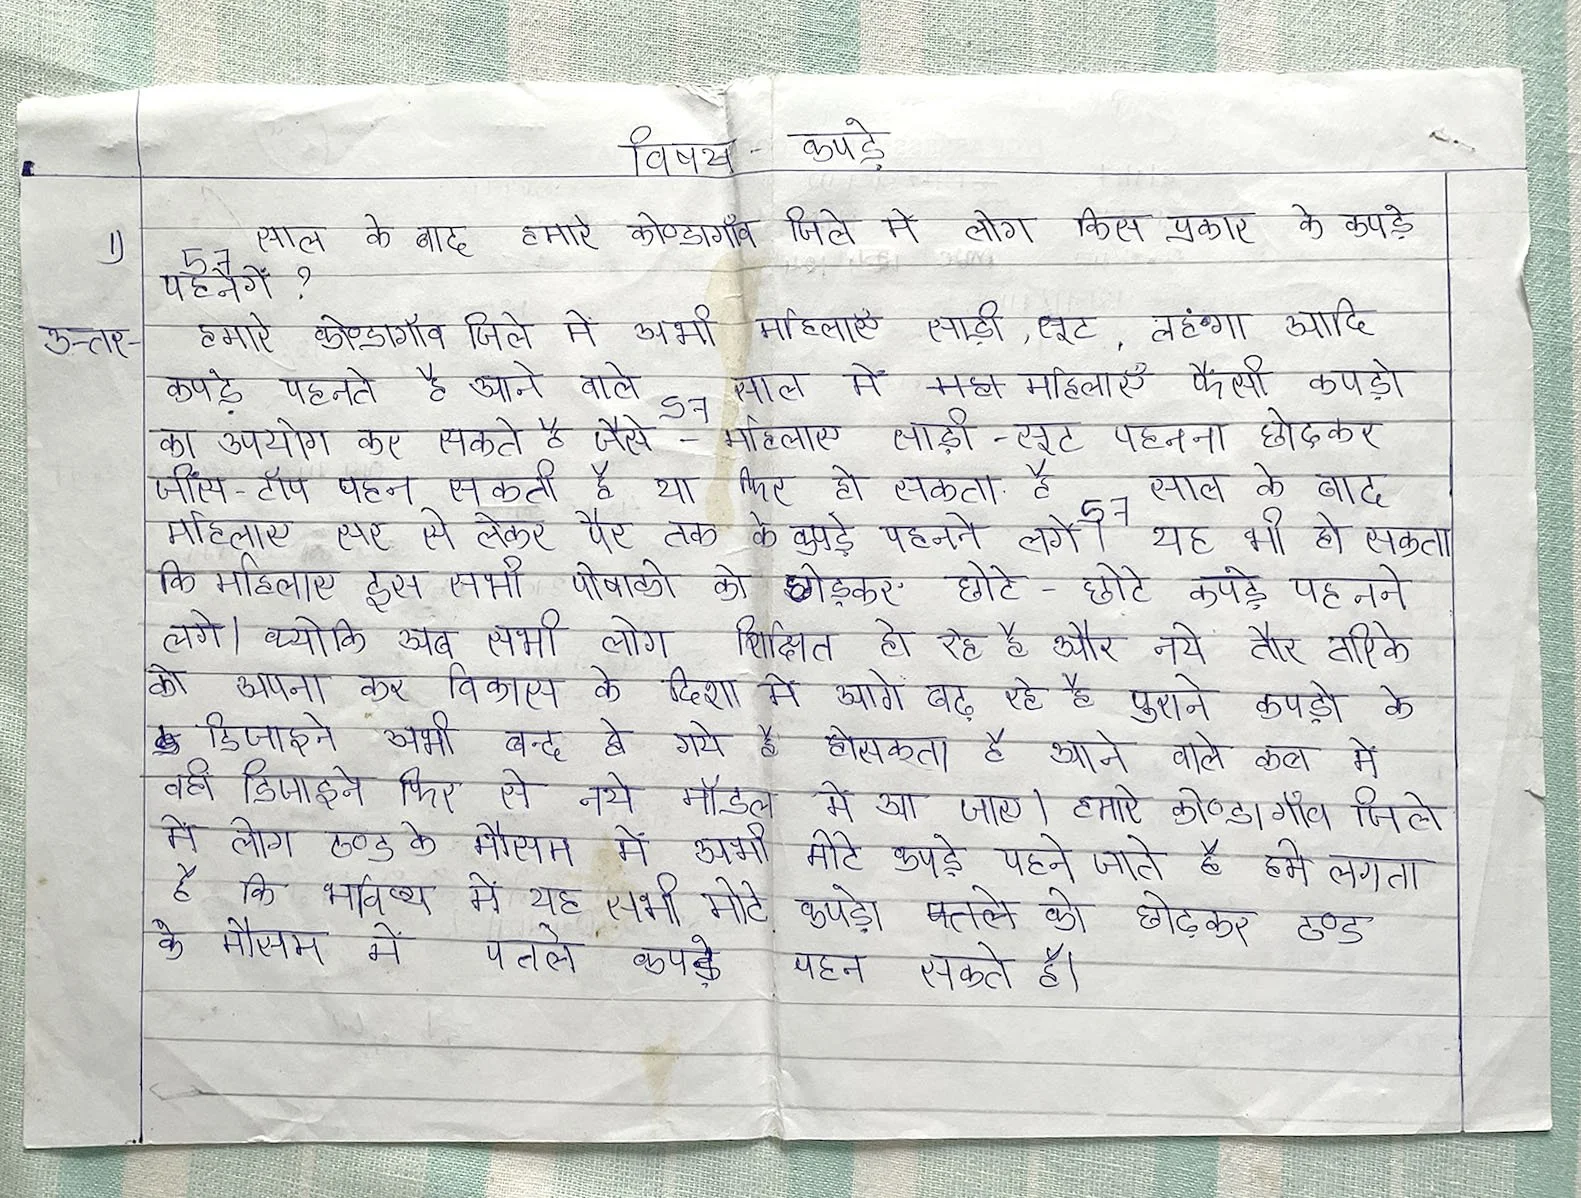 विषय - कपड़े
1) 57 साल के बाद हमारे कोण्डागाँव जिले में लोग किस प्रकार के कपड़े
पहनेगें ?
उत्तर- हमारे कोण्डागाँव जिले में अभी महिलाएँ साड़ी, सूट, लहंगा आदि
कपड़े पहनते है आने वाले 57 साल में महिलाएँ फैंसी कपड़ो
का उपयोग कर सकते है जैसे - महिलाए साड़ी - सूट पहनना छोदकर
जींस - टॉप पहन सकती है या फिर हो सकता है 57 साल के बाद
महिलाए सर से लेकर पैर तक के कपड़े पहनने लगे। यह भी हो सकता
कि महिलाए इस सभी पोषाको को छोड़कर छोटे - छोटे कपड़े पहनने
लगे। क्योकि अब सभी लोग शिक्षित हो रहे है और नये तौर तरिके
को अपना कर विकास के दिशा में आगे बढ़ रहे है पुराने कपड़ो के
डिजाइने अभी बन्द हो गये है होसकता है आने वाले कल में
वही डिजाइने फिर से नये मॉडल में आ जाए। हमारे कोण्डागाँव जिले
में लोग ठण्ड के मौसम में अभी मोटे कपड़े पहने जाते है हमे लगता
है कि भविष्य में यह सभी मोटे कपड़ो पतले को छोढ़कर ठण्ड
के मौसम में पतले कपड़े पहन सकते है।